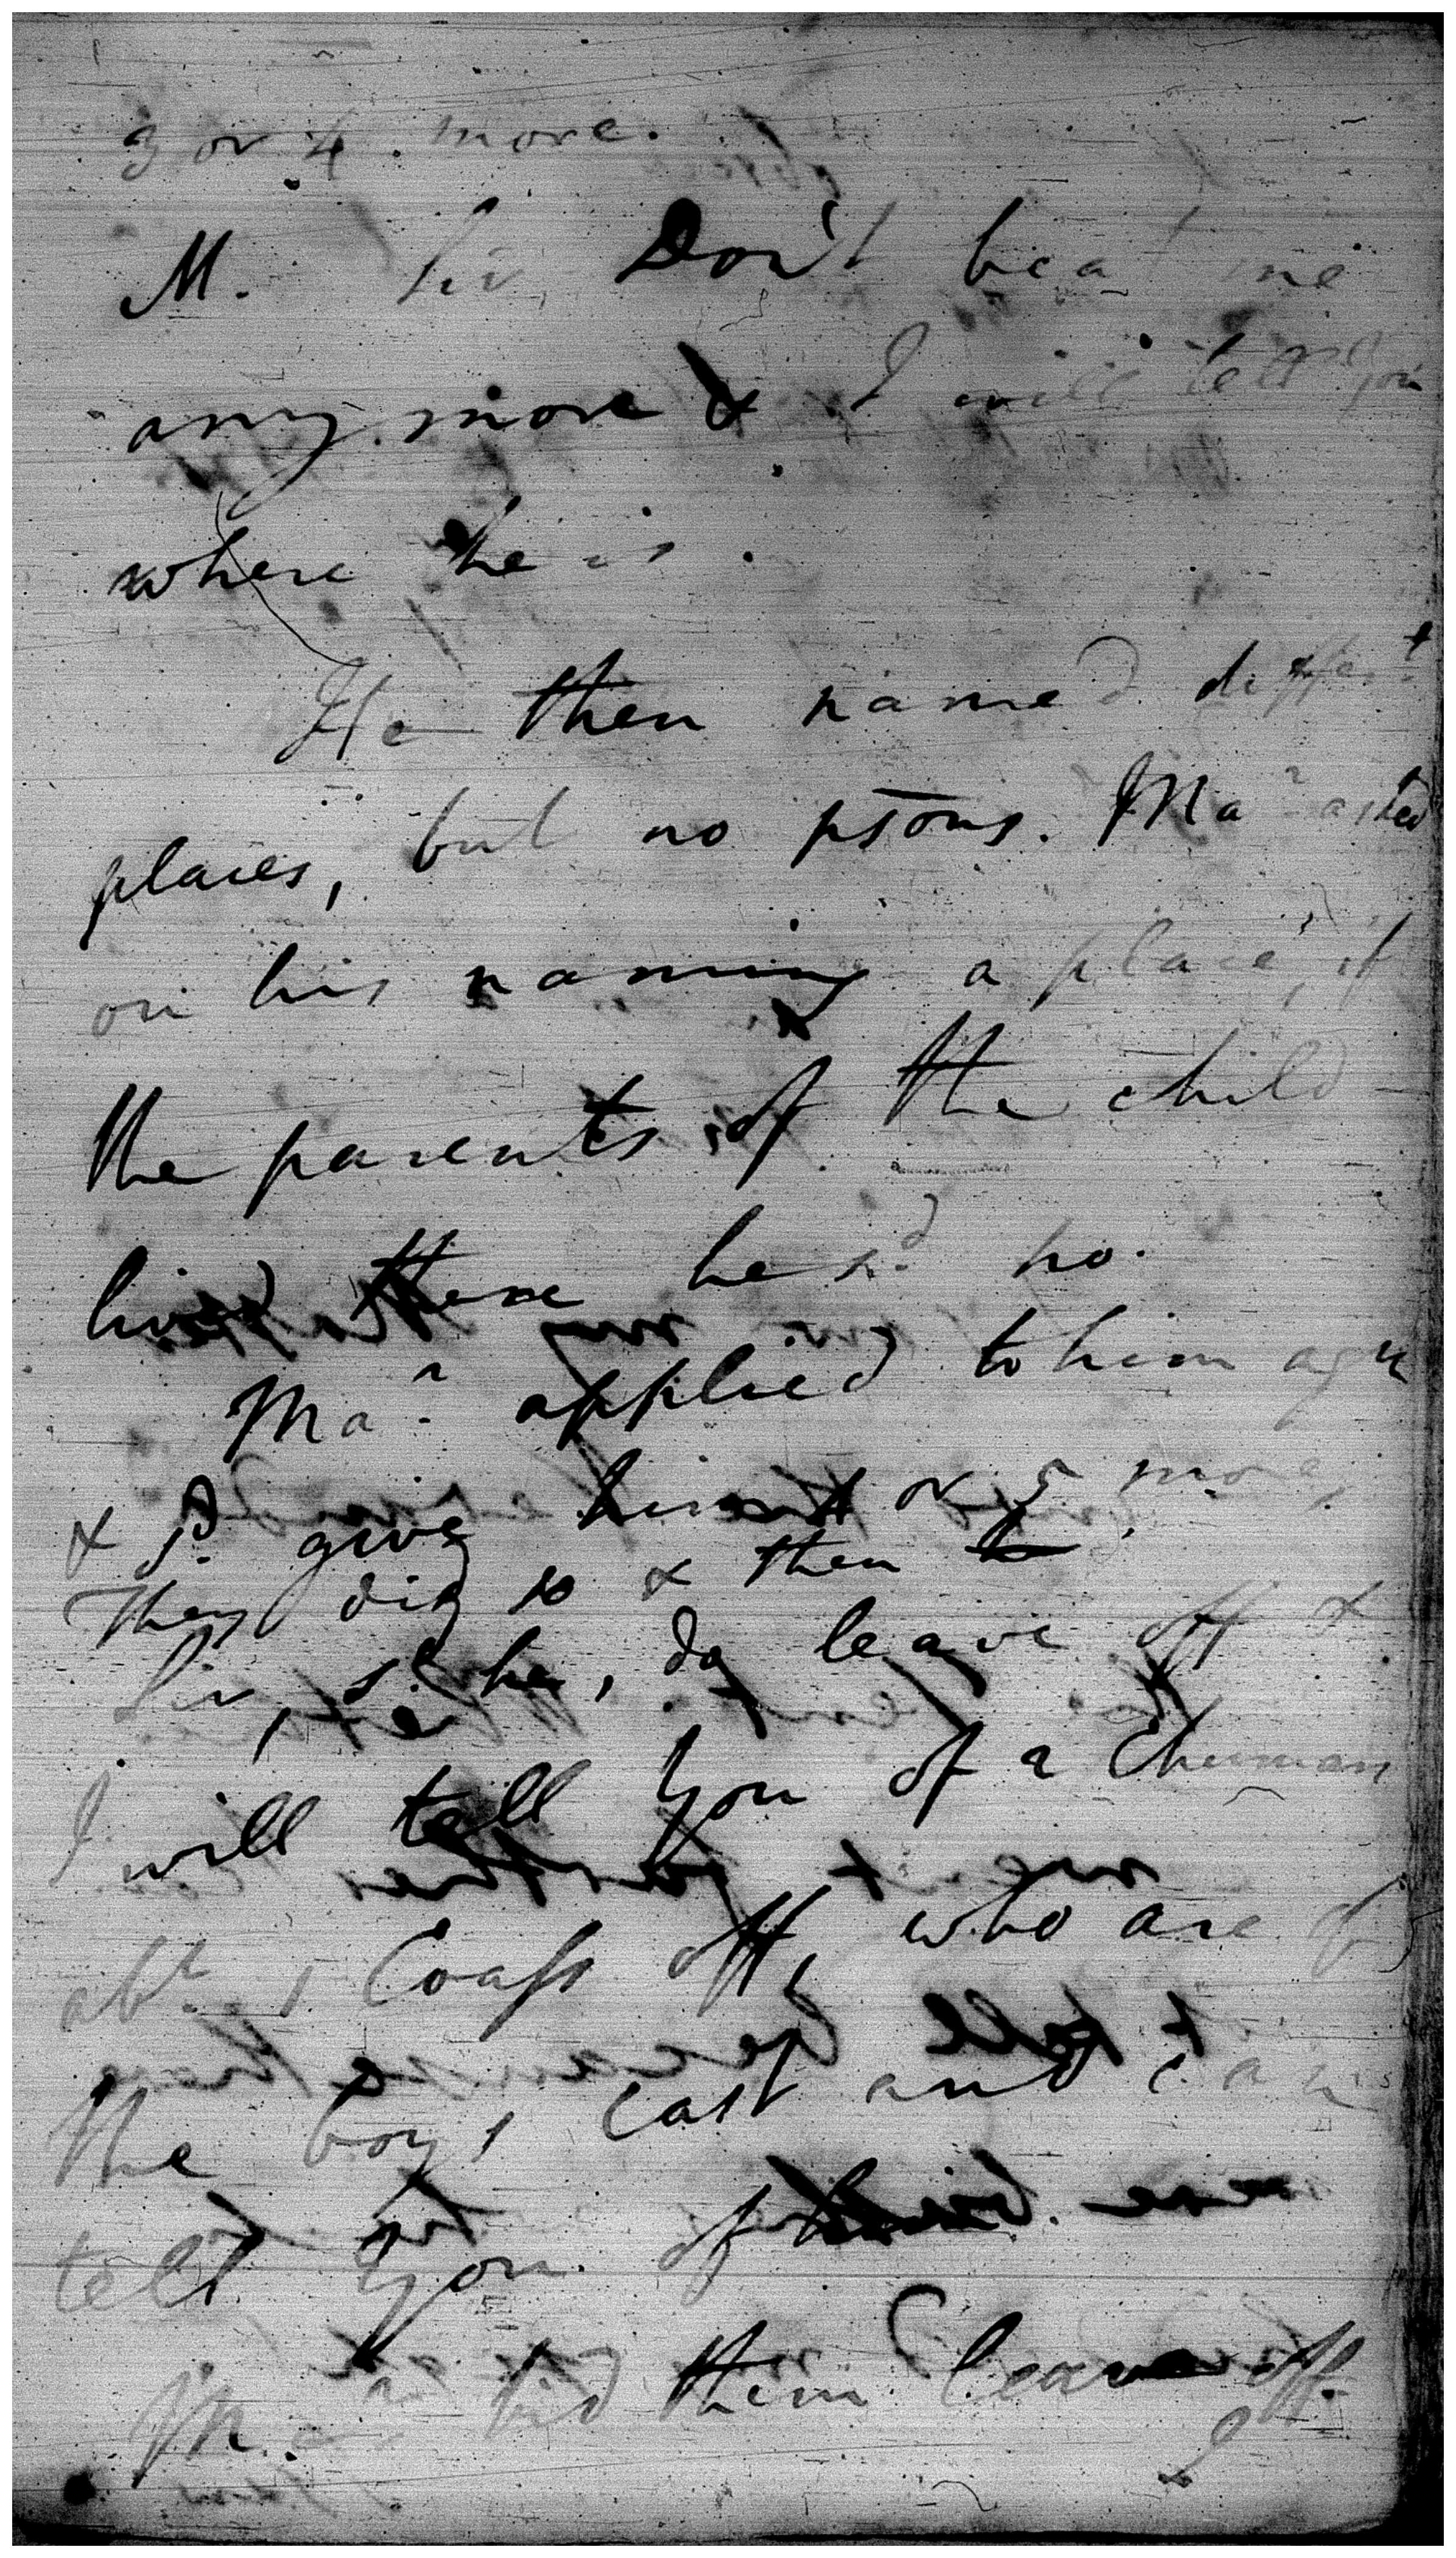 3 or 4 more.
M. Sir, Don't beat me
any more & I will tell you
where he is.
He then named differt
places, but no psons. Mar asked
on his naming a place, if
the parents of the child
lived there he sd no.
Mar applied to him agn
& sd give him 4 or 5 more,
They did so & then
Sir, sd he, do leave off &
I will tell you of a Chuman
abt 1 Coass off, who are of
the boy's cast and can
tell you of
Mar bid them leave off.